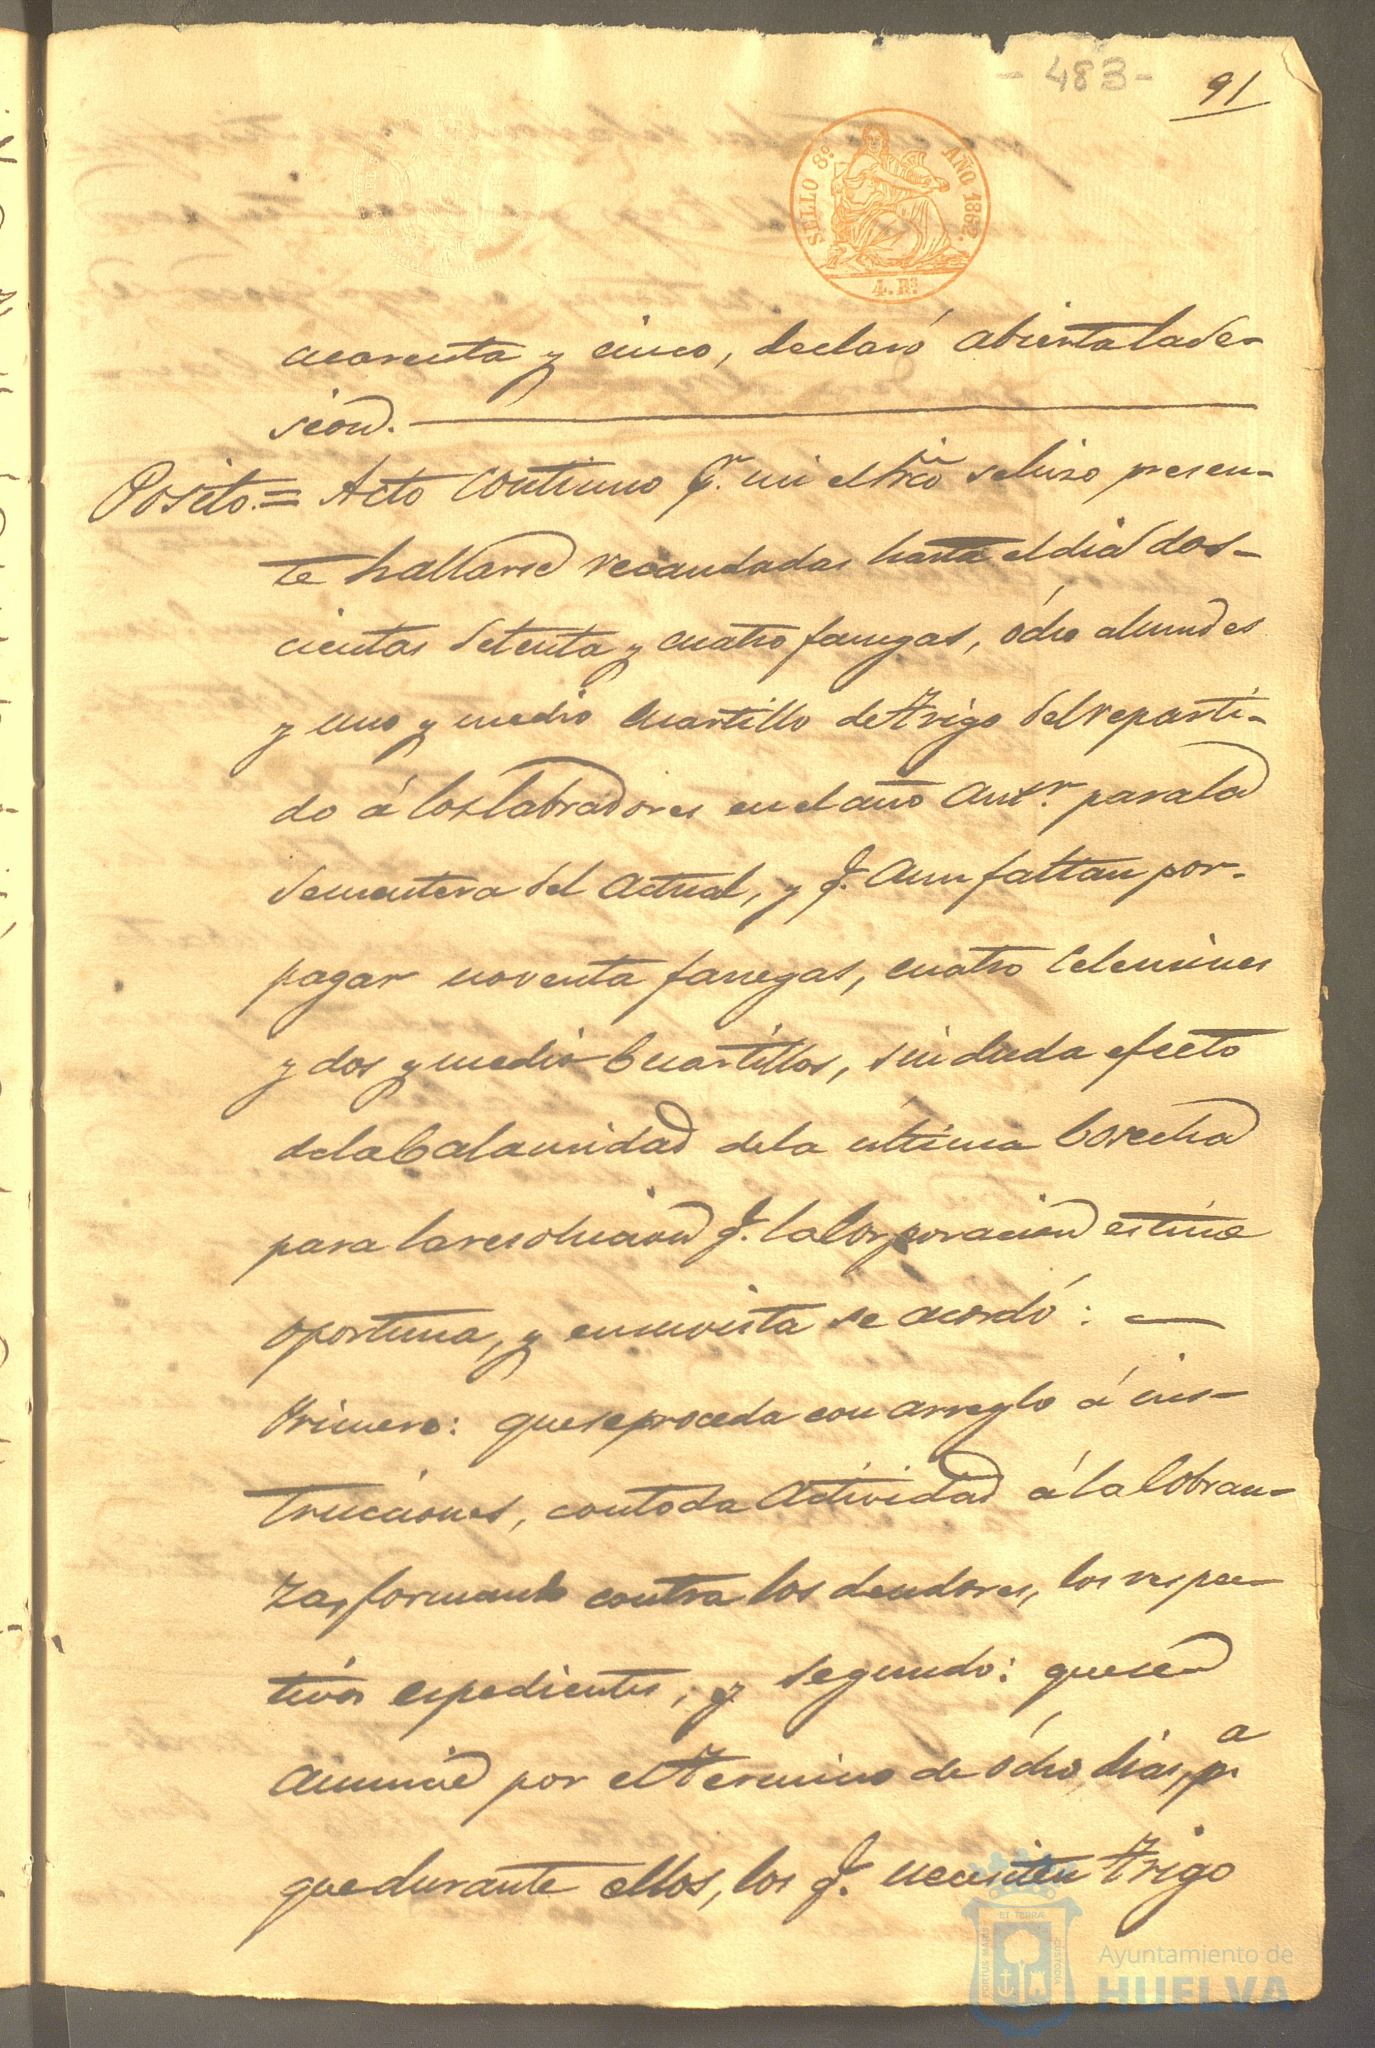 - 483 -
91
SELLO 8º AÑO 1862.
4. Rs
cuarenta y cinco, declaró abierta la Se-
sion.
Posito.= Acto continuo pr. mi el Srio se hizo presen-
te hallarse recaudadas hasta el dia dos-
cientas setenta y cuatro fanegas, ócho almudes
y uno y medio cuartillo de trigo del reparti-
do á los labradores en el año antr. para la
Sementera del actual, y q. aun faltan por-
pagar noventa fanegas, cuatro Celemines
y dos y medio Cuartillos, sin duda efecto
de la Calamidad de la ultima Cosecha
para la resolucion q. la Corporacion estime
oportuna, y en su vista se acordó:
Primero: que se proceda con arreglo á ins-
trucciones, con toda actividad á la Cobran-
za, formando contra los deudores, los respec-
tivos espedientes, y segundo: que se
anuncie por el termino de ócho dias, pa
que durante ellos, los q. necesiten trigo
PORTUS MARIS ET TERRAE CUSTODIA
Ayuntamiento de
HUELVA